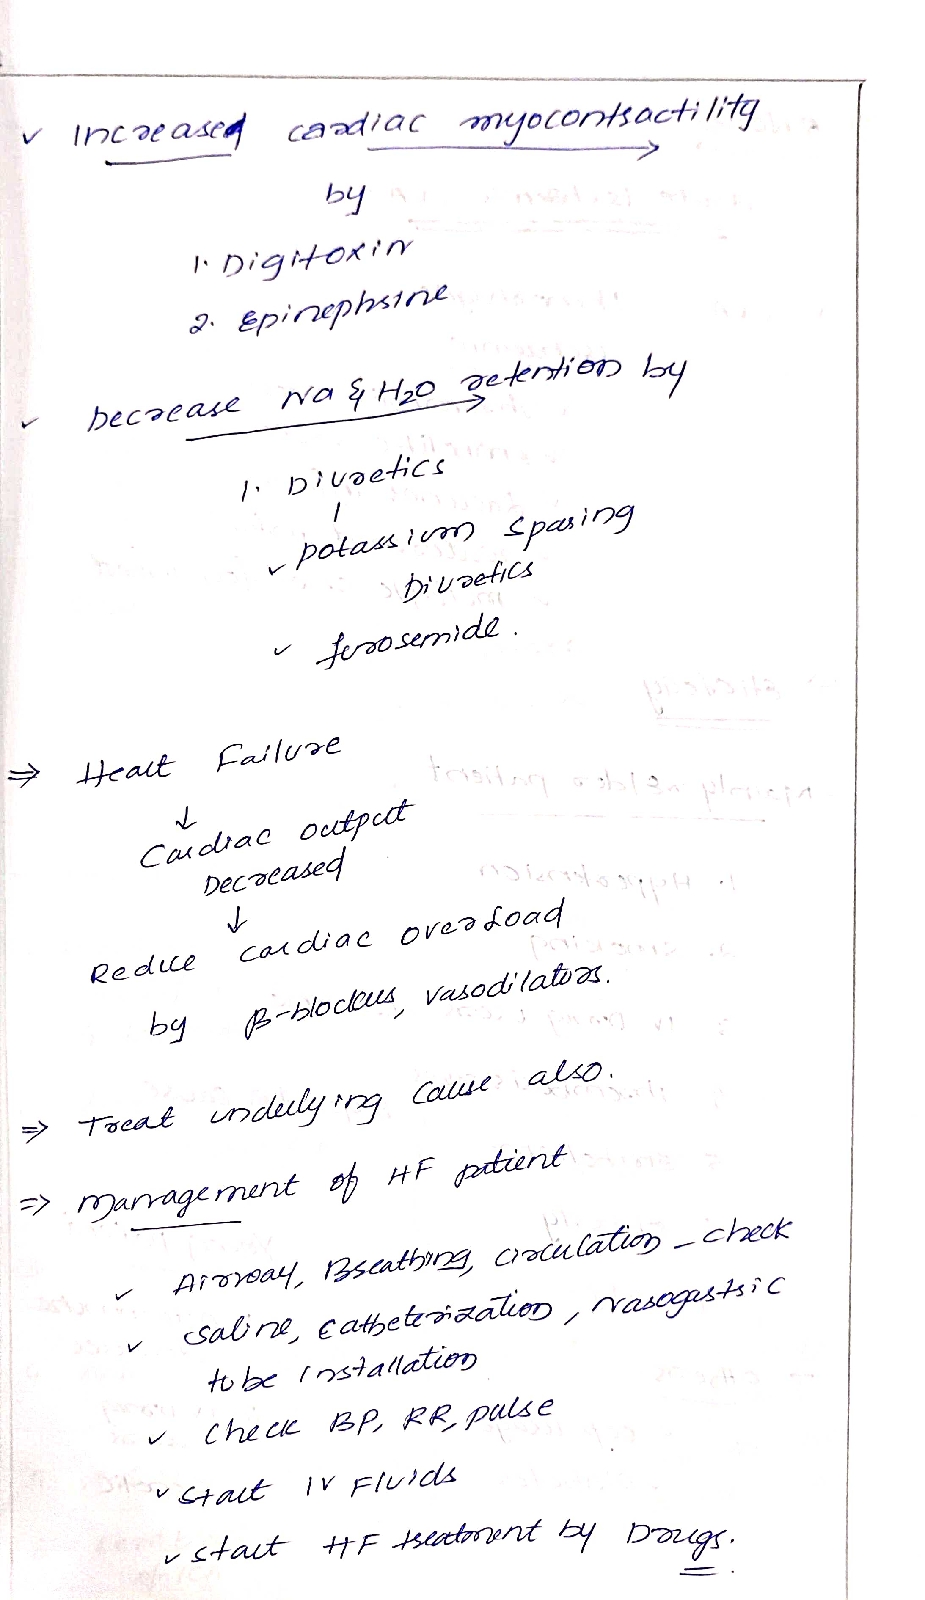 ✓ Increased cardiac myocontractility
by
1. Digitoxin
2. Epinephrine
✓ Decrease Na & H₂O retention by
1. Diuretics
✓ potassium sparing
Diuretics
✓ furosemide.
⇒ Heart Failure
↓
Cardiac output
Decreased
↓
Reduce cardiac overload
by β-blockers, vasodilators.
⇒ Treat underlying cause also.
⇒ Management of HF patient
✓ Airway, Breathing, circulation – check
✓ saline, catheterization, nasogastric
tube installation
✓ check BP, RR, pulse
✓ start IV Fluids
✓ start HF treatment by Drugs.